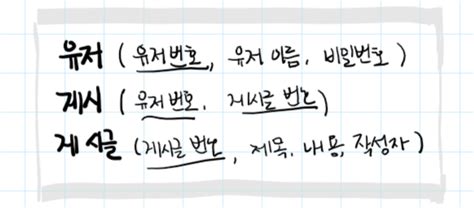 유저 ( 유저번호, 유저 이름, 비밀번호 )
게시 ( 유저 번호, 게시글 번호 )
게시글 ( 게시글 번호, 제목, 내용, 작성자 )